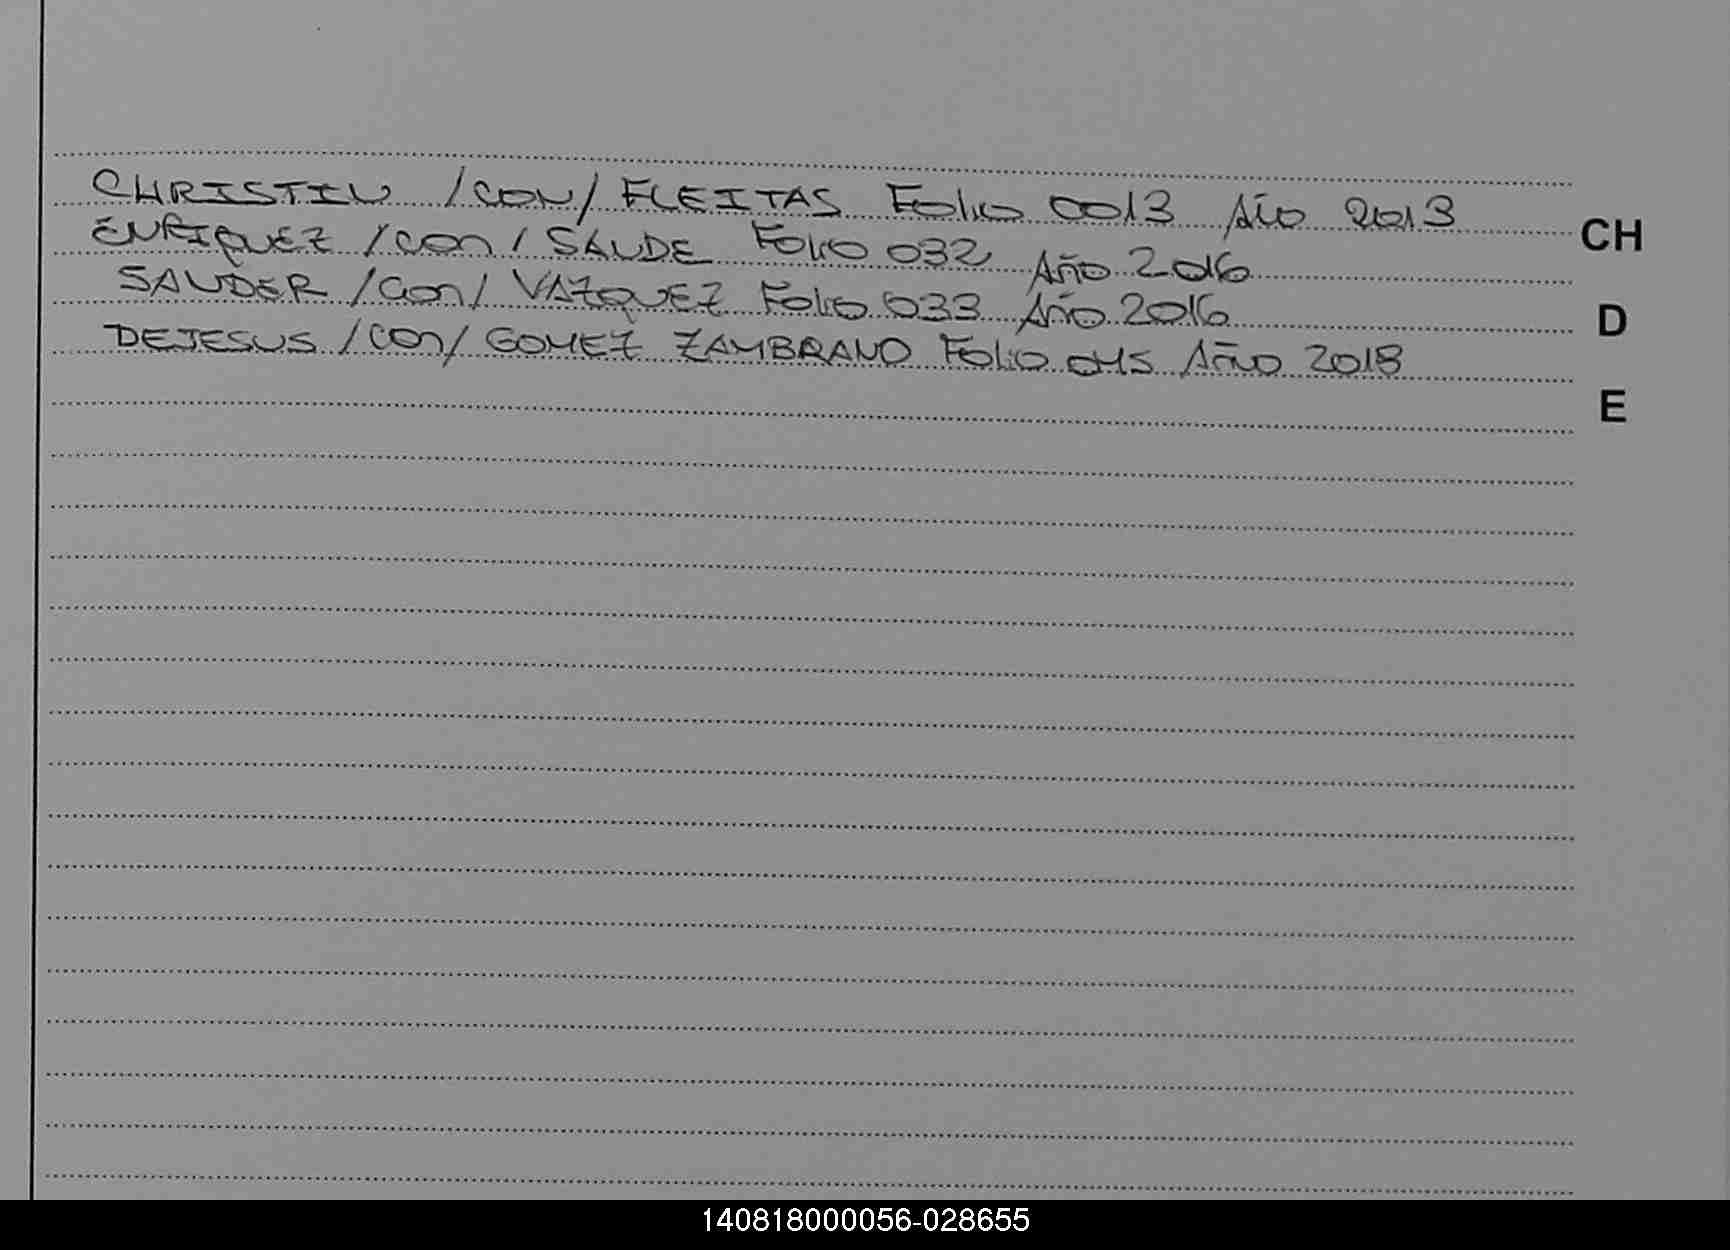 CHRISTIN /CON/ FLEITAS Folio 0013 Año 2013
ENRIQUEZ /con/ SAUDE Folio 032 Año 2016
SAUDER /con/ VAZQUEZ Folio 033 Año 2016
DEJESUS /con/ GOMEZ ZAMBRANO Folio 045 Año 2018
CH
D
E
140818000056-028655